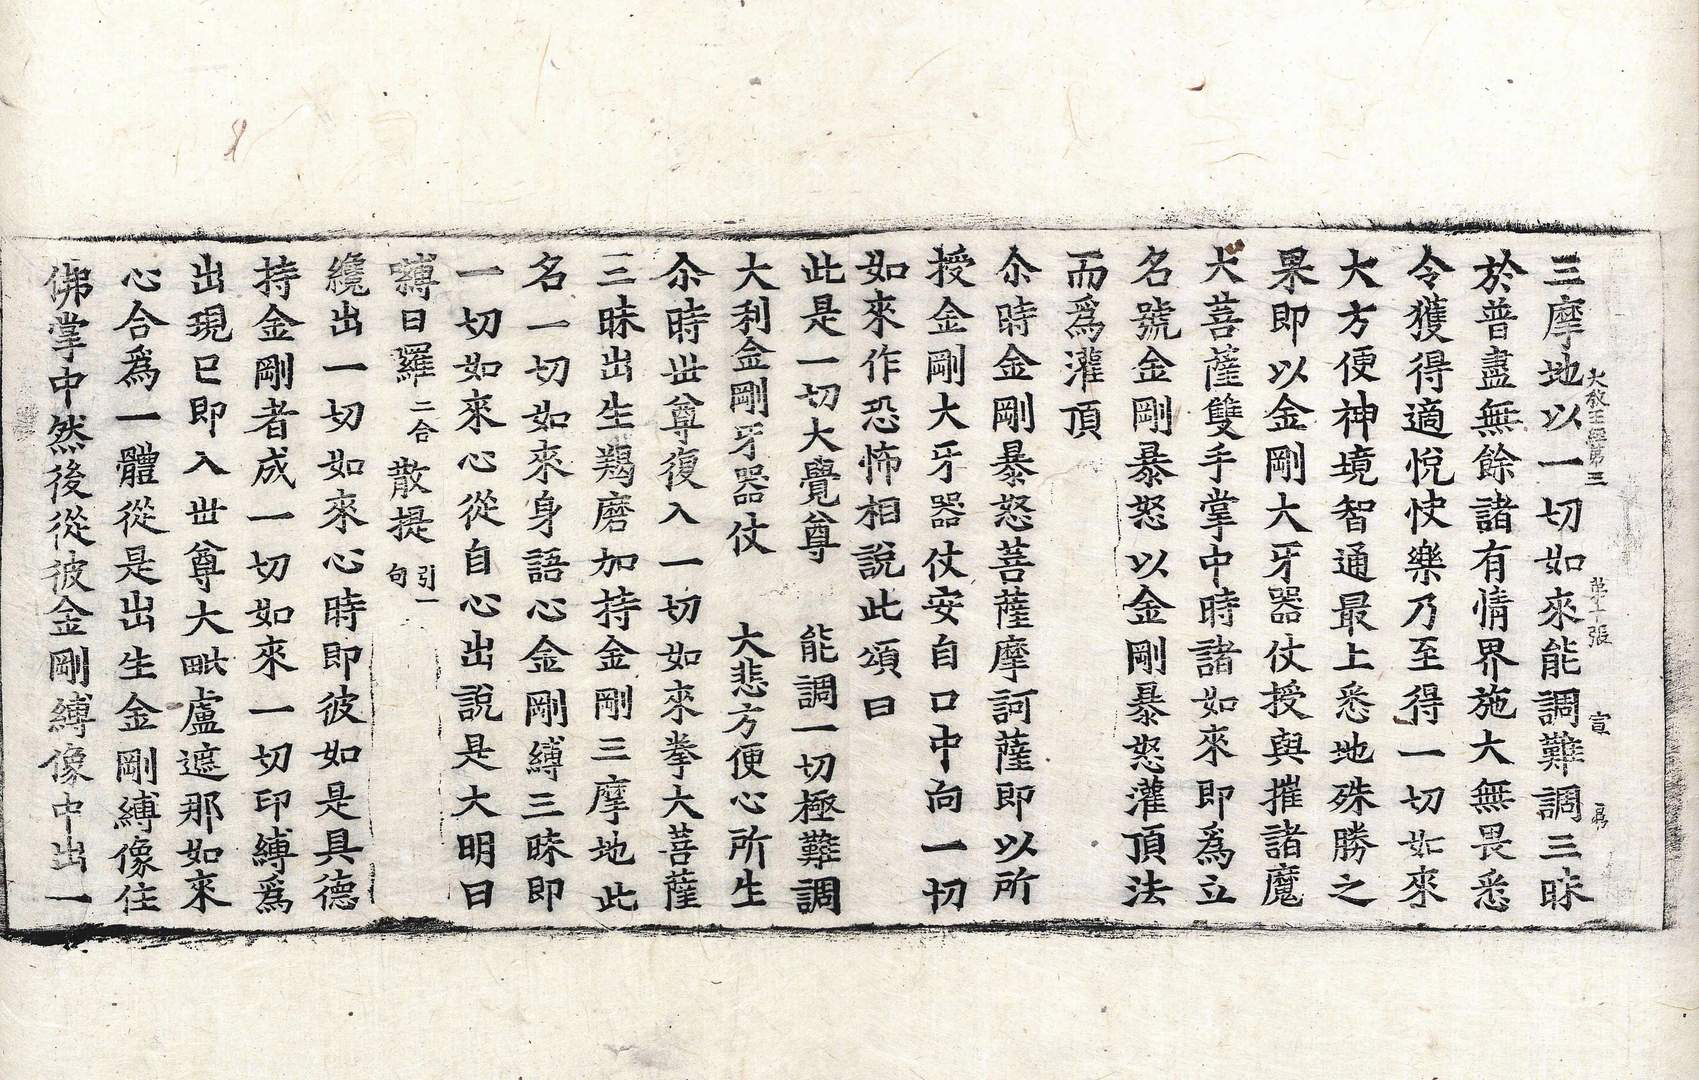 三摩地以一切如來能調難調三昧
大教王經第三 第十張 宣
於普盡無餘諸有情界施大無畏悉
令獲得適悅快樂乃至得一切如來
大方便神境智通最上悉地殊勝之
果即以金剛大牙器仗授與摧諸魔
大菩薩雙手掌中時諸如來即為立
名號金剛暴怒以金剛暴怒灌頂法
而為灌頂
尒時金剛暴怒菩薩摩訶薩即以所
授金剛大牙器仗安自口中向一切
如來作恐怖相說此頌曰
此是一切大覺尊 能調一切極難調
大利金剛牙器仗 大悲方便心所生
尒時世尊復入一切如來拳大菩薩
三昧出生羯磨加持金剛三摩地此
名一切如來身語心金剛縛三昧即
一切如來心從自心出說是大明曰
嚩日羅二合散提引一句
纔出一切如來心時即彼如是具德
持金剛者成一切如來一切印縛為
出現已即入世尊大毗盧遮那如來
心合為一體從是出生金剛縛像住
佛掌中然後從彼金剛縛像中出一